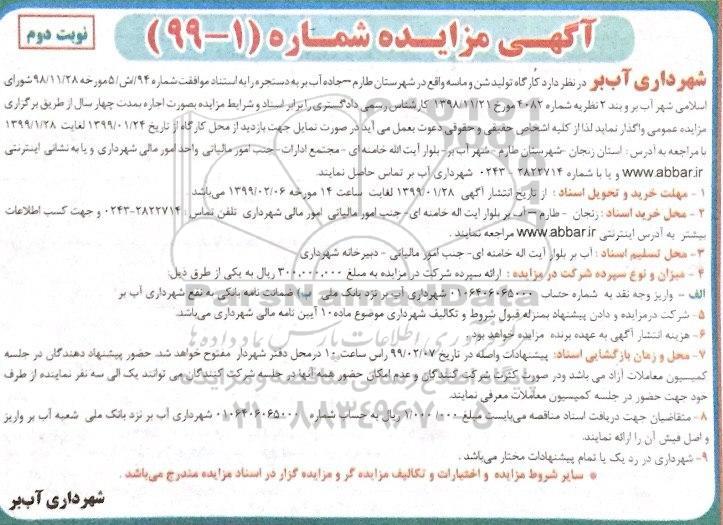 آگهی مزایده شماره (۱-۹۹)
نوبت دوم
شهرداری آب‌بر در نظر دارد کارگاه تولید شن و ماسه واقع در شهرستان طارم - جاده آب بر به دستجرد را به استناد موافقت شماره ۹۴/ش/۵ مورخه ۹۸/۱۱/۲۸ شورای
اسلامی شهر آب بر و بند ۲ نظریه شماره ۴۰۸۲ مورخ ۱۳۹۸/۱۱/۲۱ کارشناس رسمی دادگستری را برابر اسناد و شرایط مزایده بصورت اجاره بمدت چهار سال از طریق برگزاری
مزایده عمومی واگذار نماید لذا از کلیه اشخاص حقیقی و حقوقی دعوت بعمل می آید در صورت تمایل جهت بازدید از محل کارگاه از تاریخ ۱۳۹۹/۰۱/۲۴ لغایت ۱۳۹۹/۱/۲۸
با مراجعه به آدرس : استان زنجان - شهرستان طارم - شهر آب بر - بلوار آیت الله خامنه ای - مجتمع ادارات - جنب امور مالیاتی واحد امور مالی شهرداری و یا به نشانی اینترنتی
www.abbar.ir و یا با شماره ۲۸۲۲۷۱۴ - ۰۲۴۳ شهرداری آب بر تماس حاصل نمایند.
۱ - مهلت خرید و تحویل اسناد : از تاریخ انتشار آگهی ۱۳۹۹/۰۱/۲۸ لغایت ساعت ۱۴ مورخه ۱۳۹۹/۰۲/۰۶ می‌باشد .
۲ - محل خرید اسناد : زنجان - طارم - آب بر بلوار آیت اله خامنه ای - جنب امور مالیاتی امور مالی شهرداری تلفن تماس : ۲۸۲۲۷۱۴-۰۲۴۳ و جهت کسب اطلاعات
بیشتر به آدرس اینترنتی www.abbar.ir مراجعه نمایند .
۳ - محل تسلیم اسناد : آب بر بلوار آیت اله خامنه ای- جنب امور مالیاتی - دبیرخانه شهرداری
۴ - میزان و نوع سپرده شرکت در مزایده : ارائه سپرده شرکت در مزایده به مبلغ ۳۰۰,۰۰۰,۰۰۰ ریال به یکی از طرق ذیل:
الف - واریز وجه نقد به شماره حساب ۰۱۰۶۴۰۶۰۶۵۰۰۰ شهرداری آب بر نزد بانک ملی ب) ضمانت نامه بانکی به نفع شهرداری آب بر
۵ - شرکت در مزایده و دادن پیشنهاد بمنزله قبول شروط و تکالیف شهرداری موضوع ماده ۱۰ آیین نامه مالی شهرداری می‌باشد.
۶ - هزینه انتشار آگهی به عهده برنده مزایده خواهد بود.
۷ - محل و زمان بازگشایی اسناد: پیشنهادات واصله در تاریخ ۹۹/۰۲/۰۷ راس ساعت ۱۰ در محل دفتر شهردار مفتوح خواهد شد. حضور پیشنهاد دهندگان در جلسه
کمیسیون معاملات آزاد می باشد ودر صورت کثرت شرکت کنندگان و عدم امکان حضور همه آنها در جلسه شرکت کنندگان می توانند یک الی سه نفر نماینده از طرف
خود جهت حضور در جلسه کمیسیون معاملات معرفی نمایند.
۸ - متقاضیان جهت دریافت اسناد مناقصه می‌بایست مبلغ ۱/۰۰۰/۰۰۰ ریال به حساب شماره ۰۱۰۶۴۰۶۰۶۵۰۰۰ شهرداری آب بر نزد بانک ملی شعبه آب بر واریز
و اصل فیش آن را ارائه نمایند.
۹ - شهرداری در رد یک یا تمام پیشنهادات مختار می‌باشد .
* سایر شروط مزایده و اختیارات و تکالیف مزایده گر و مزایده گزار در اسناد مزایده مندرج می‌باشد .
شهرداری آب‌بر
ParsNamadData
۰۲۱-۸۸۳۴۹۶۷۰-۵